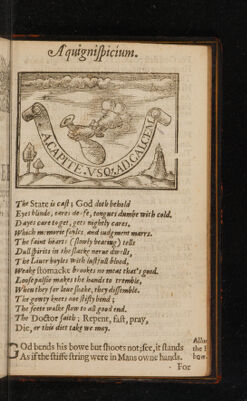 Æquignispicium.
A CAPITE. VSQ; AD, CALCEM
The State is cast; God doth behold
Eyes blinde, eares deafe, tongues dumbe with cold.
Dayes care to get, gets nightly cares,
Which memorie foyles, and iudgment marrs.
The faint heart (slowly bearing) tells
Dull spirits in the slacke nerue dwells,
The Liuer boyles with lustfull blood,
Weake stomacke brookes no meat that's good.
Loose palsie makes the hands to tremble,
When they for loue shake, they dissemble.
The gowty knees not stifly bend;
The feete walke slow to all good end.
The Doctor saith; Repent, fast, pray,
Die, or this diet take we may.
God bends his bowe but shoots not; see, it stands
As if the stiffe string were in Mans owne hands.
the
bow.
For